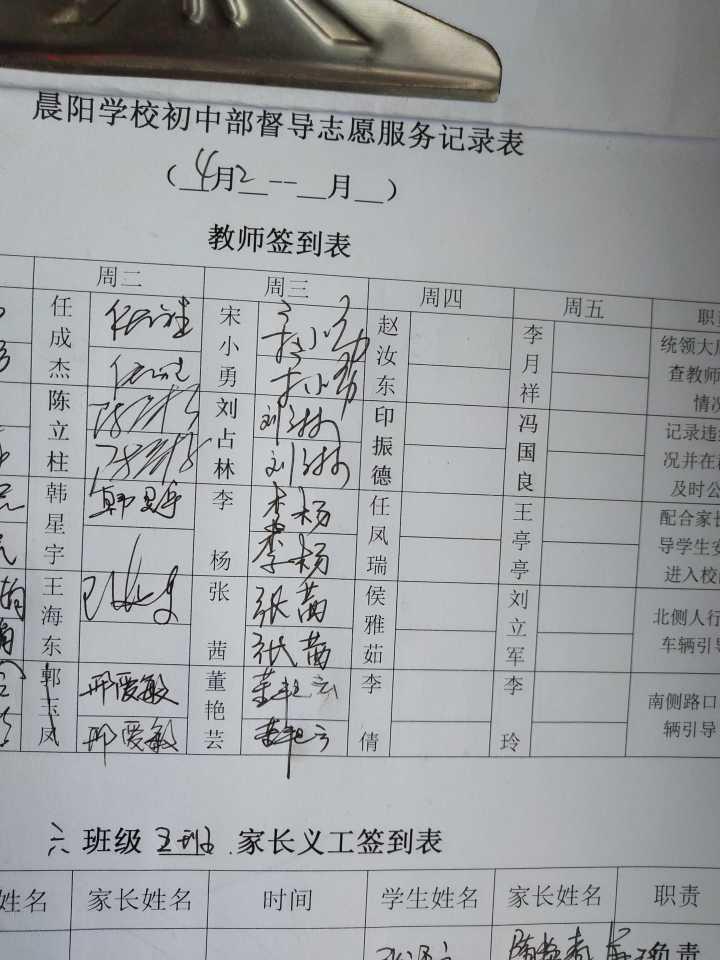 晨阳学校初中部督导志愿服务记录表
（4月2--__月__）
教师签到表
周二 周三 周四 周五 职责
任成杰 宋小勇 赵汝东 李月祥 统领大
查教师
情况
陈立柱 陈立柱 刘占林 刘占林 印振德 冯国良 记录违
陈立柱 刘占林 况并在
及时公
韩星宇 韩星宇 李杨 李杨 任凤瑞 王亭亭 配合家长
李杨 导学生安
进入校
王海东 张茜 张茜 侯雅茹 刘立军 北侧人行
张茜 车辆引导
郭玉凤 邢爱敏 董艳芸 董艳云 李倩 李玲 南侧路口
邢爱敏 董艳云 辆引导
六 班级 五班 家长义工签到表
姓名 家长姓名 时间 学生姓名 家长姓名 职责
负责